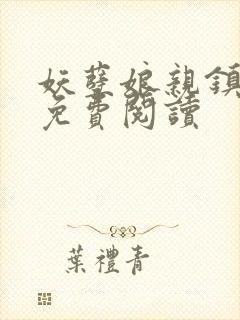 妖孽娘親鎮
免費閱讀
葉禮青